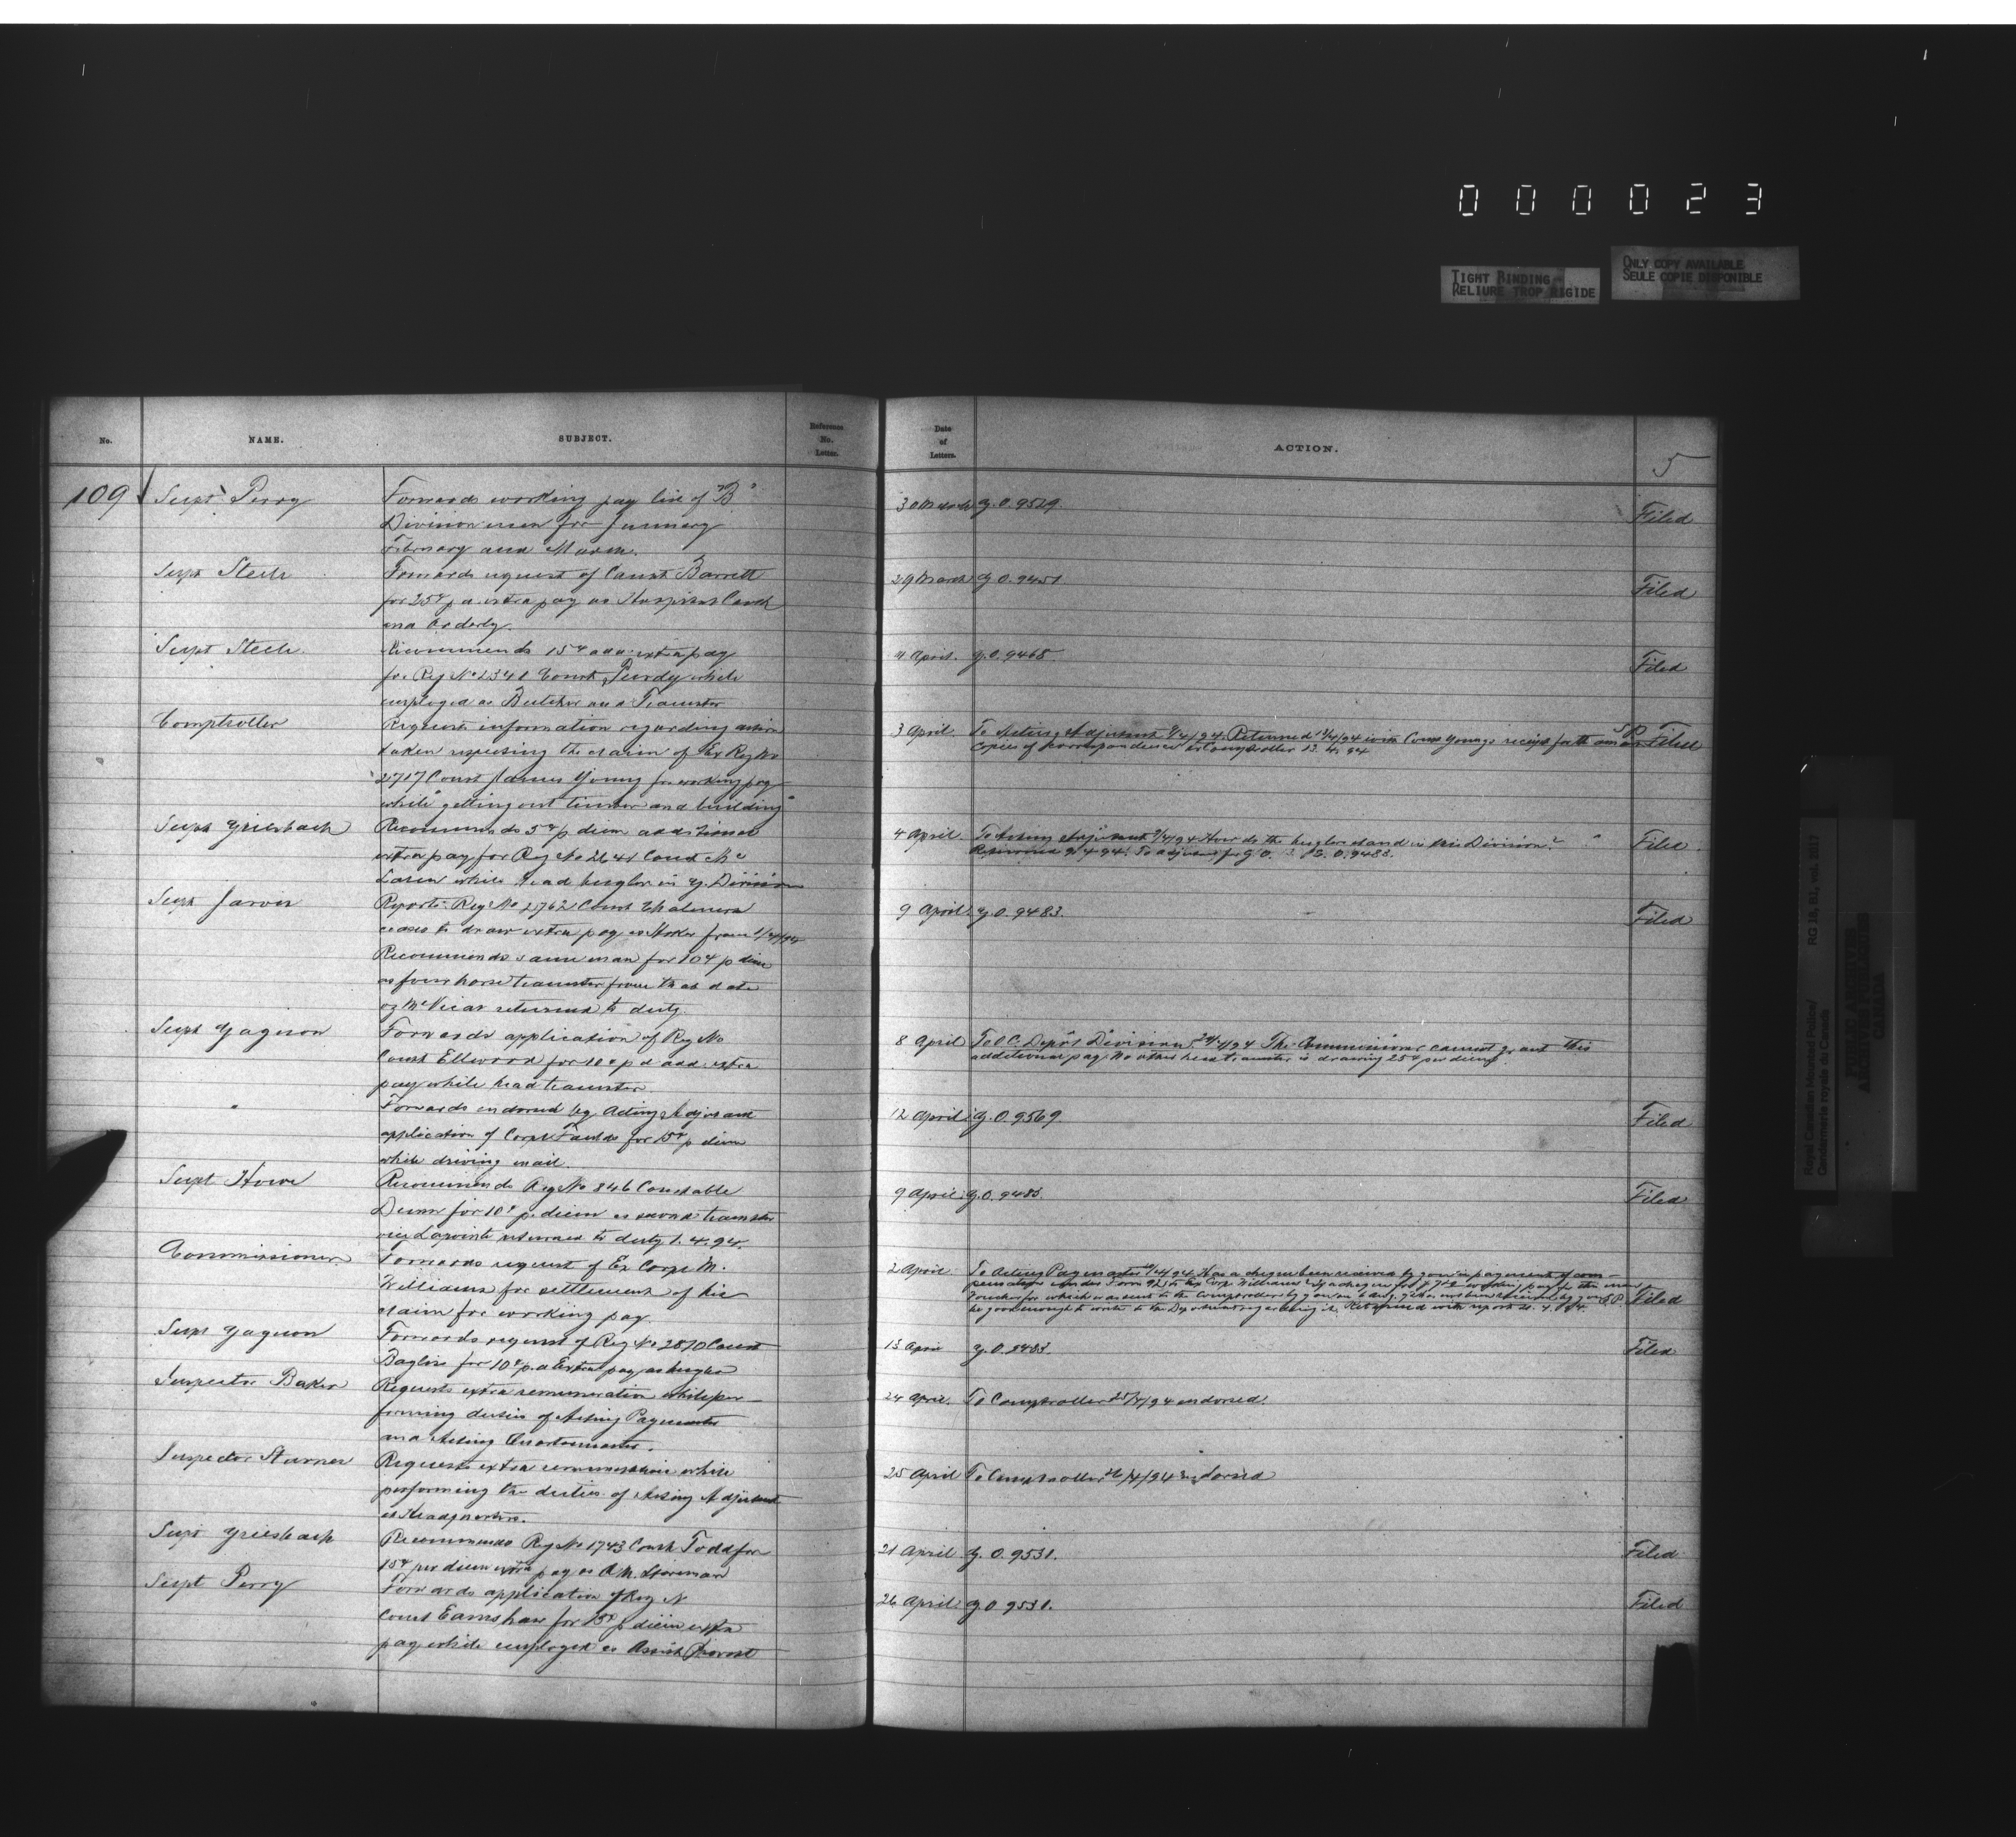 000023
TIGHT BINDING
RELIURE TROP RIGIDE
ONLY COPY AVAILABLE
SEULE COPIE DISPONIBLE
No.
NAME.
SUBJECT.
Reference No. Letter.
Date of Letters.
ACTION.
5
109
Supt Perry
Forwards working pay list of "B"
Division men for January
February and March.
30 March
G.O. 9529
Filed
Supt Steele
Forwards request of Const Barrett
for 25¢ p d extra pay as Hospital Cook
and Orderly.
29 March
G.O. 9451
Filed
Supt Steele
Recommends 15¢ add: extra pay
for Reg No 2348 Const Purdy while
employed as Butcher and Teamster
4 April
G.O. 9468
Filed
Comptroller
Requests information regarding action
taken respecting the claim of Ex Reg No
2717 Const James Young for working pay
while "getting out timber and building"
3 April
To Acting Adjutant 9/4/94. Returned with Const Youngs receipt for the
Copies of correspondence to Comptroller 13.4.94
Filed
Supt Griesbach
Recommends 5¢ p diem additional
extra pay for Reg No Const Mc
Laren while head bugler in G. Division
4 April
To Acting Adjutant 9/4/94 How do the buglers stand in this Division?
Returned 9.4.94. To adjutant for G.O. G.O. 9483.
Filed
Supt Jarvis
Reports Reg No 2762 Const Chalmers
ceases to draw extra pay as Stoker from 1/4/94
Recommends same man for 10¢ p diem
as four horse teamster from that date
McVicar returned to duty.
9 April
G.O. 9483.
Filed
Supt Gagnon
Forwards application of Reg No
Const Ellwood for 10¢ p d add: extra
pay while head teamster
8 April
To O.C. Depôt Division The Commissioner cannot grant this
additional pay. No other head teamster is drawing 25¢ per diem
"
Forwards endorsed by Acting Adjutant
application of Corpl Faulds for 15¢ p diem
while driving mail.
12 April
G.O. 9569.
Filed
Supt Howe
Recommends Reg No 846 Constable
Dunn for 10¢ p. diem as second teamster
vice Lapointe returned to duty 1.4.94.
9 April
G.O. 9483.
Filed
Commissioner
Forwards request of Ex Corpl M.
Williams for settlement of his
claim for working pay.
2 April
To Acting Paymaster Has a cheque been received by you in payment of
Form 92 to Ex Corp Williams
Voucher for which was sent to the Comptroller by you on
be good enough to write to the Department regarding it. Returned with report
Filed
Supt Gagnon
Forwards request of Reg No 2870 Const
for 10¢ p. d Extra pay as bugler
13 April
G.O. 9483.
Filed
Inspector Baker
Requests extra remuneration while per-
forming duties of Acting Paymaster
and Acting Quartermaster.
24 April.
To Comptroller 25/4/94 endorsed.
Inspector Starnes
Requests extra remuneration while
performing the duties of Acting Adjutant
at Headquarters.
25 April
To Comptroller 26/4/94 Endorsed
Supt Griesbach
Recommends Reg No 1743 Const Todd for
15¢ per diem extra pay as Q.M. Storeman
21 April
G.O. 9531.
Filed
Supt Perry
Forwards application of Reg N
Const Earnshaw for 15¢ p diem extra
pay while employed as Assist Provost
26 April
G.O 9531.
Filed
Royal Canadian Mounted Police/
Gendarmerie royale du Canada
RG 18, B1, vol. 2017
PUBLIC ARCHIVES
ARCHIVES PUBLIQUES
CANADA